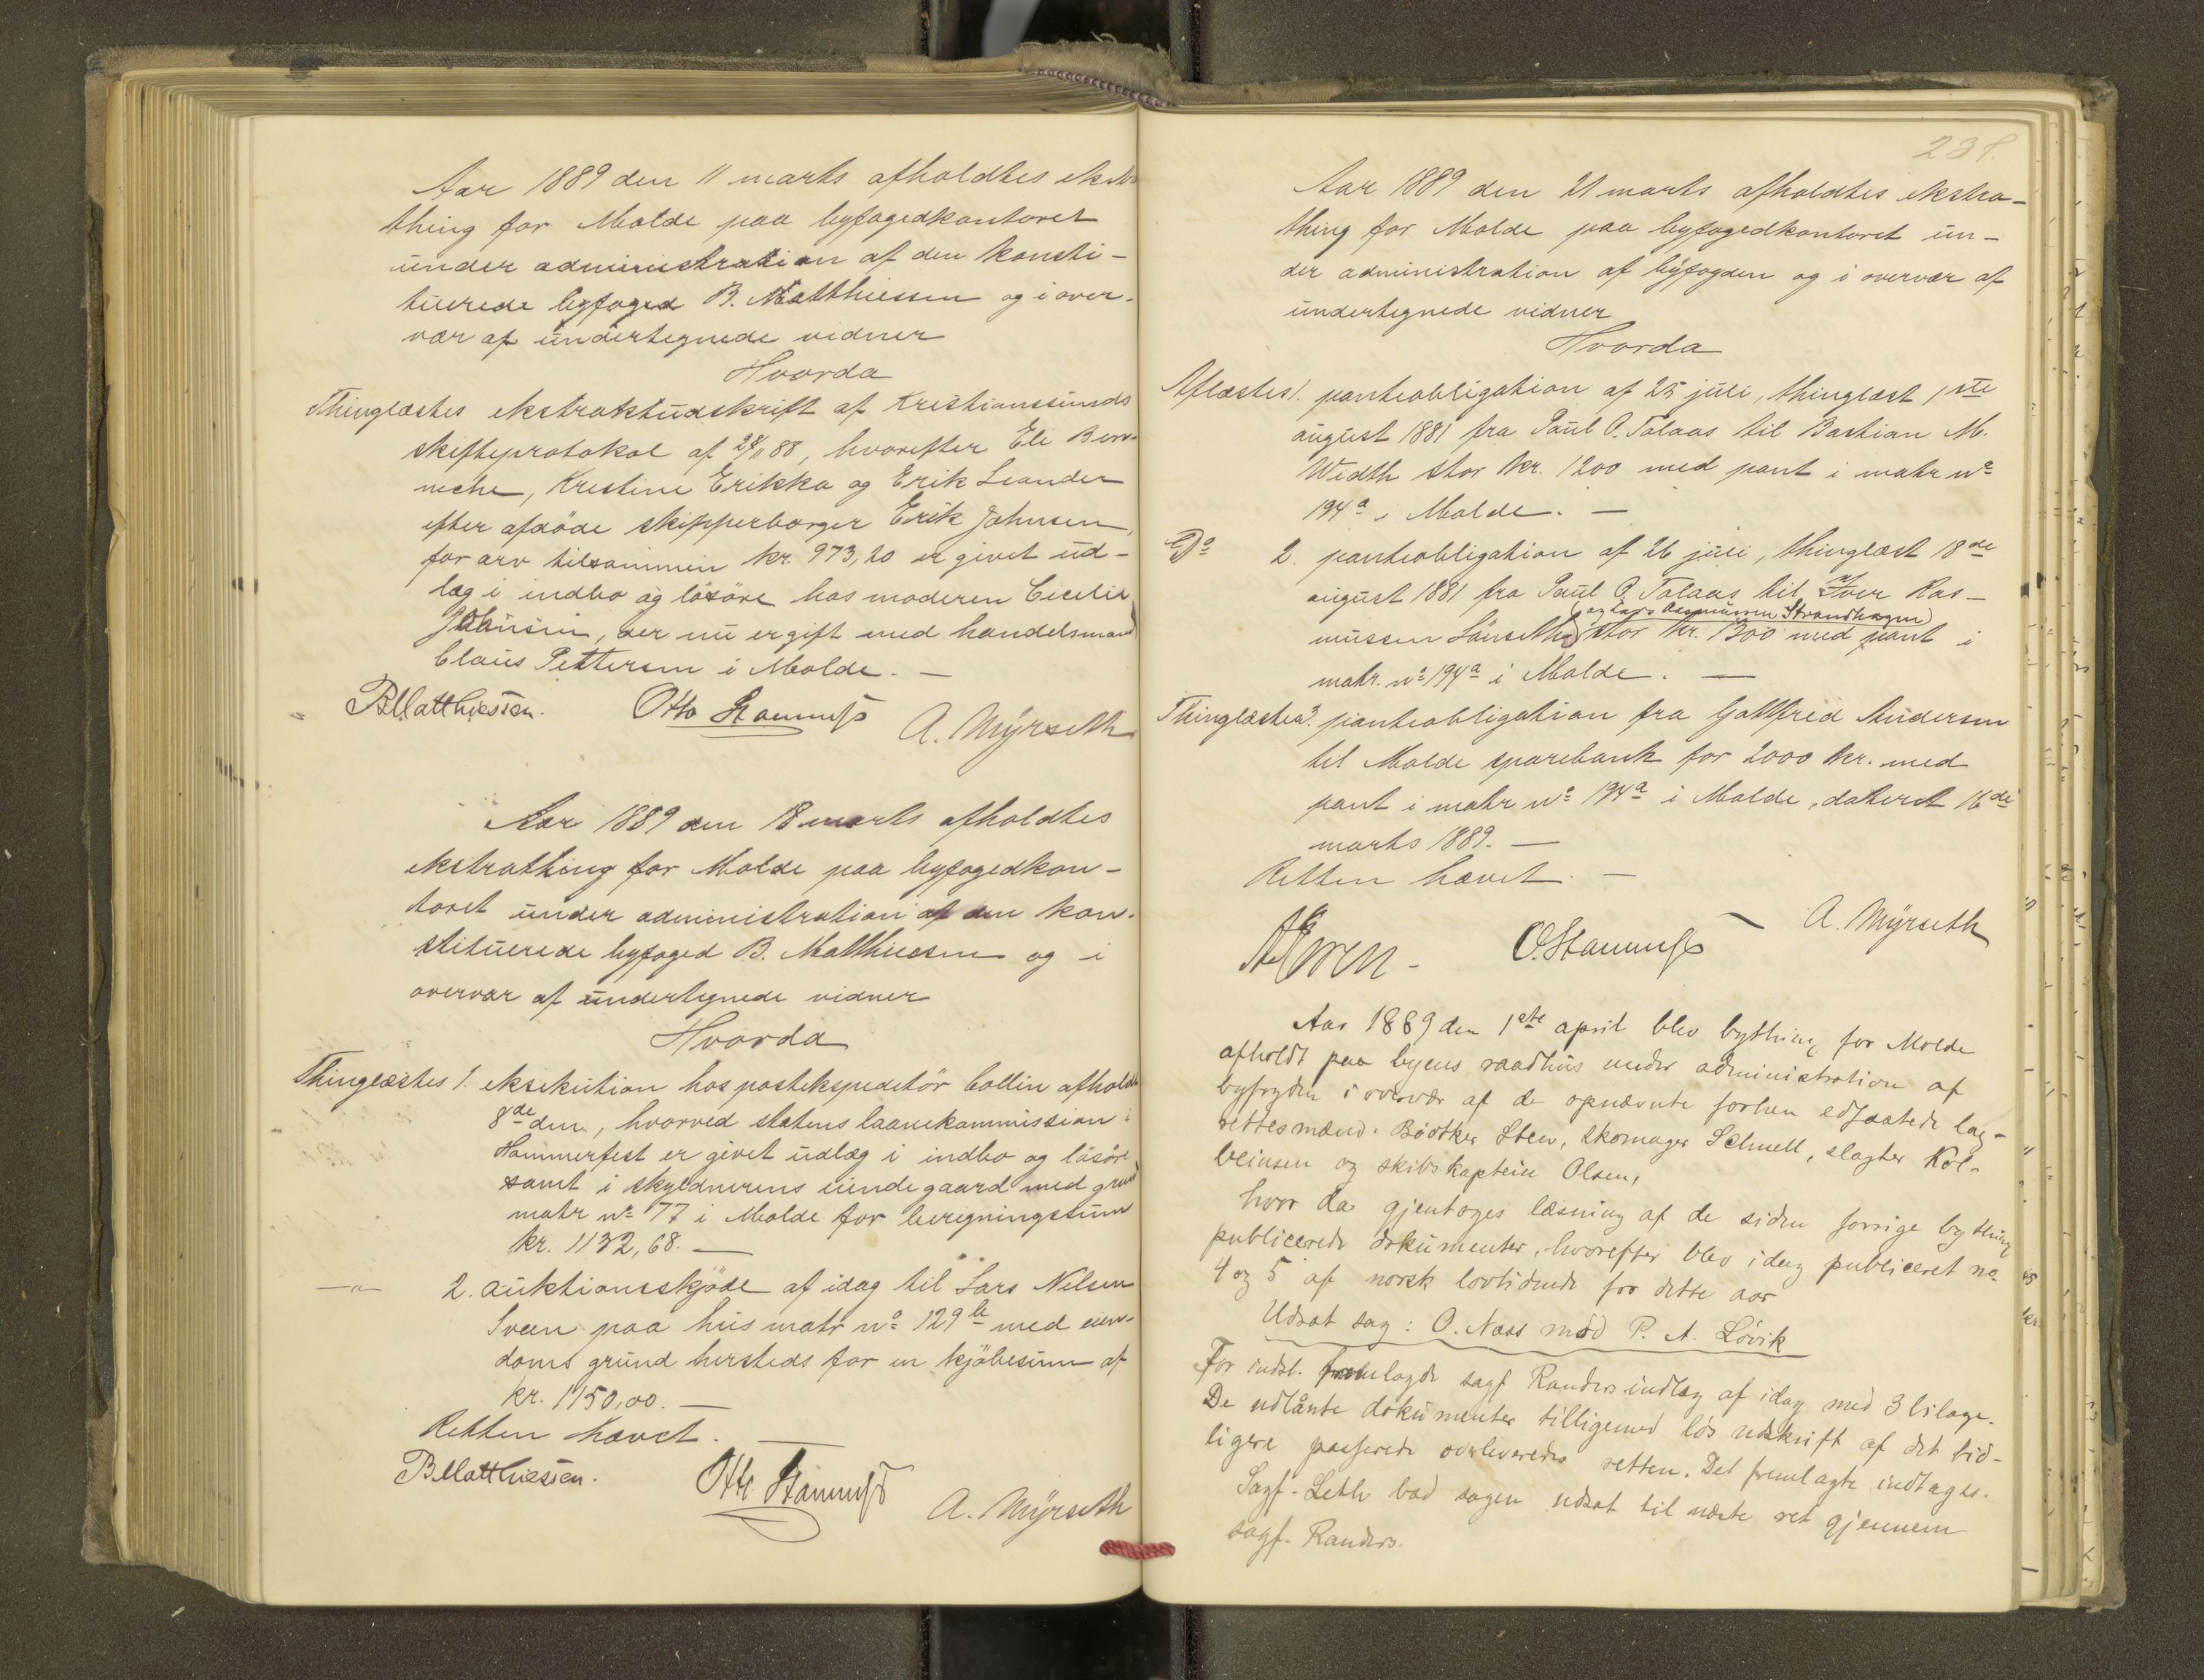 Aar 1889 den 11 marts afholdtes ekstra
thing for Molde paa byfogedkontoret
under administration af den konsti-
tuerede byfoged B. Matthiessen og i over-
vær af undertegnede vidner
Hvorda
Thinglæstes ekstraktudskrift af Kristianssunds
skifteprotokol af 28/11 88, hvorefter Eli
Kristine Erikka og Erik Leander
efter afdøde skipperborger Erik Johnsen,
for arv tilsammen kr. 973,20 er givet ud-
læg i indbo og løsøre hos moderen Cicilie
Johnsen, der nu er gift med handelsmand
Claus Pettersen i Molde. —
BMatthiessen. Otto A. Myrseth
Aar 1889 den 18 marts afholdtes
ekstrathing for Molde paa byfogedkon-
toret under administration af den kon-
stituerede byfoged B. Matthiessen og i
overvær af undertegnede vidner
Hvorda
Thinglæstes 1. eksekution hos postekspeditør Collin afholdt
8de dm., hvorved statens laanekommission i
Hammerfest er givet udlæg i indbo og løsøre
samt i skyldnerens eiendegaard med grund
matr nº 77 i Molde for beregningssum
kr. 1132,68. —
—"— 2. auktionsskjøde af idag til Lars Nilsen
Sveen paa hus matr nº 129b med eien-
doms grund hersteds for en kjøbesum af
kr. 1150,00. —
Retten hævet. —
BMatthiessen. Otto A. Myrseth
238.
Aar 1889 den 21 marts afholdtes ekstra-
thing for Molde paa byfogedkontoret un-
der administration af byfogden og i overvær af
undertegnede vidner
Hvorda
Aflæstes 1. panteobligation af 25 juli, thinglæst 1ste
august 1881 fra Paul O. Talaas til Bastian M.
Width stor kr. 1200 med pant i matr nº
194a i Molde. —
Dº 2. panteobligation af 26 juli, thinglæst 18de
august 1881 fra Paul O. Talaas til Iver Ras-
(og Lars Rasmussen Strandhagen)
mussen Lønseth stor kr. 1300 med pant i
matr. nº 194a i Molde. —
Thinglæstes 3. panteobligation fra Gottfred Andersen
til Molde sparebank for 2000 kr. med
pant i matr nº 194a i Molde, dateret 16de
marts 1889. —
Retten hævet. —
A. Myrseth
Aar 1889 den 1ste april blev bything for Molde
afholdt paa byens raadhus under administration af
byfogden i overvær af de opnævnte forhen edfæstede lag-
rettesmænd: Bødtker Sten, skomager Schnell, slagter Kol-
beinsen og skibskaptein Olsen,
hvor da gjentoges læsning af de siden forrige bything
publicerede dokumenter, hvorefter blev idag publiceret no.
4 og 5 af norsk lovtidende for dette aar
Udsat sag: O. Næss mod P. A. Løvik
For indst. fremlagde sagf Randers indlæg af idag med 3 bilage.
De udlånte dokumenter tilligemed løs udskrift af det tid-
ligere passerede overleveredes retten. Det fremlagte indtages.
Sagf. Leth bad sagen udsat til næste ret gjennem
sagf. Randers.